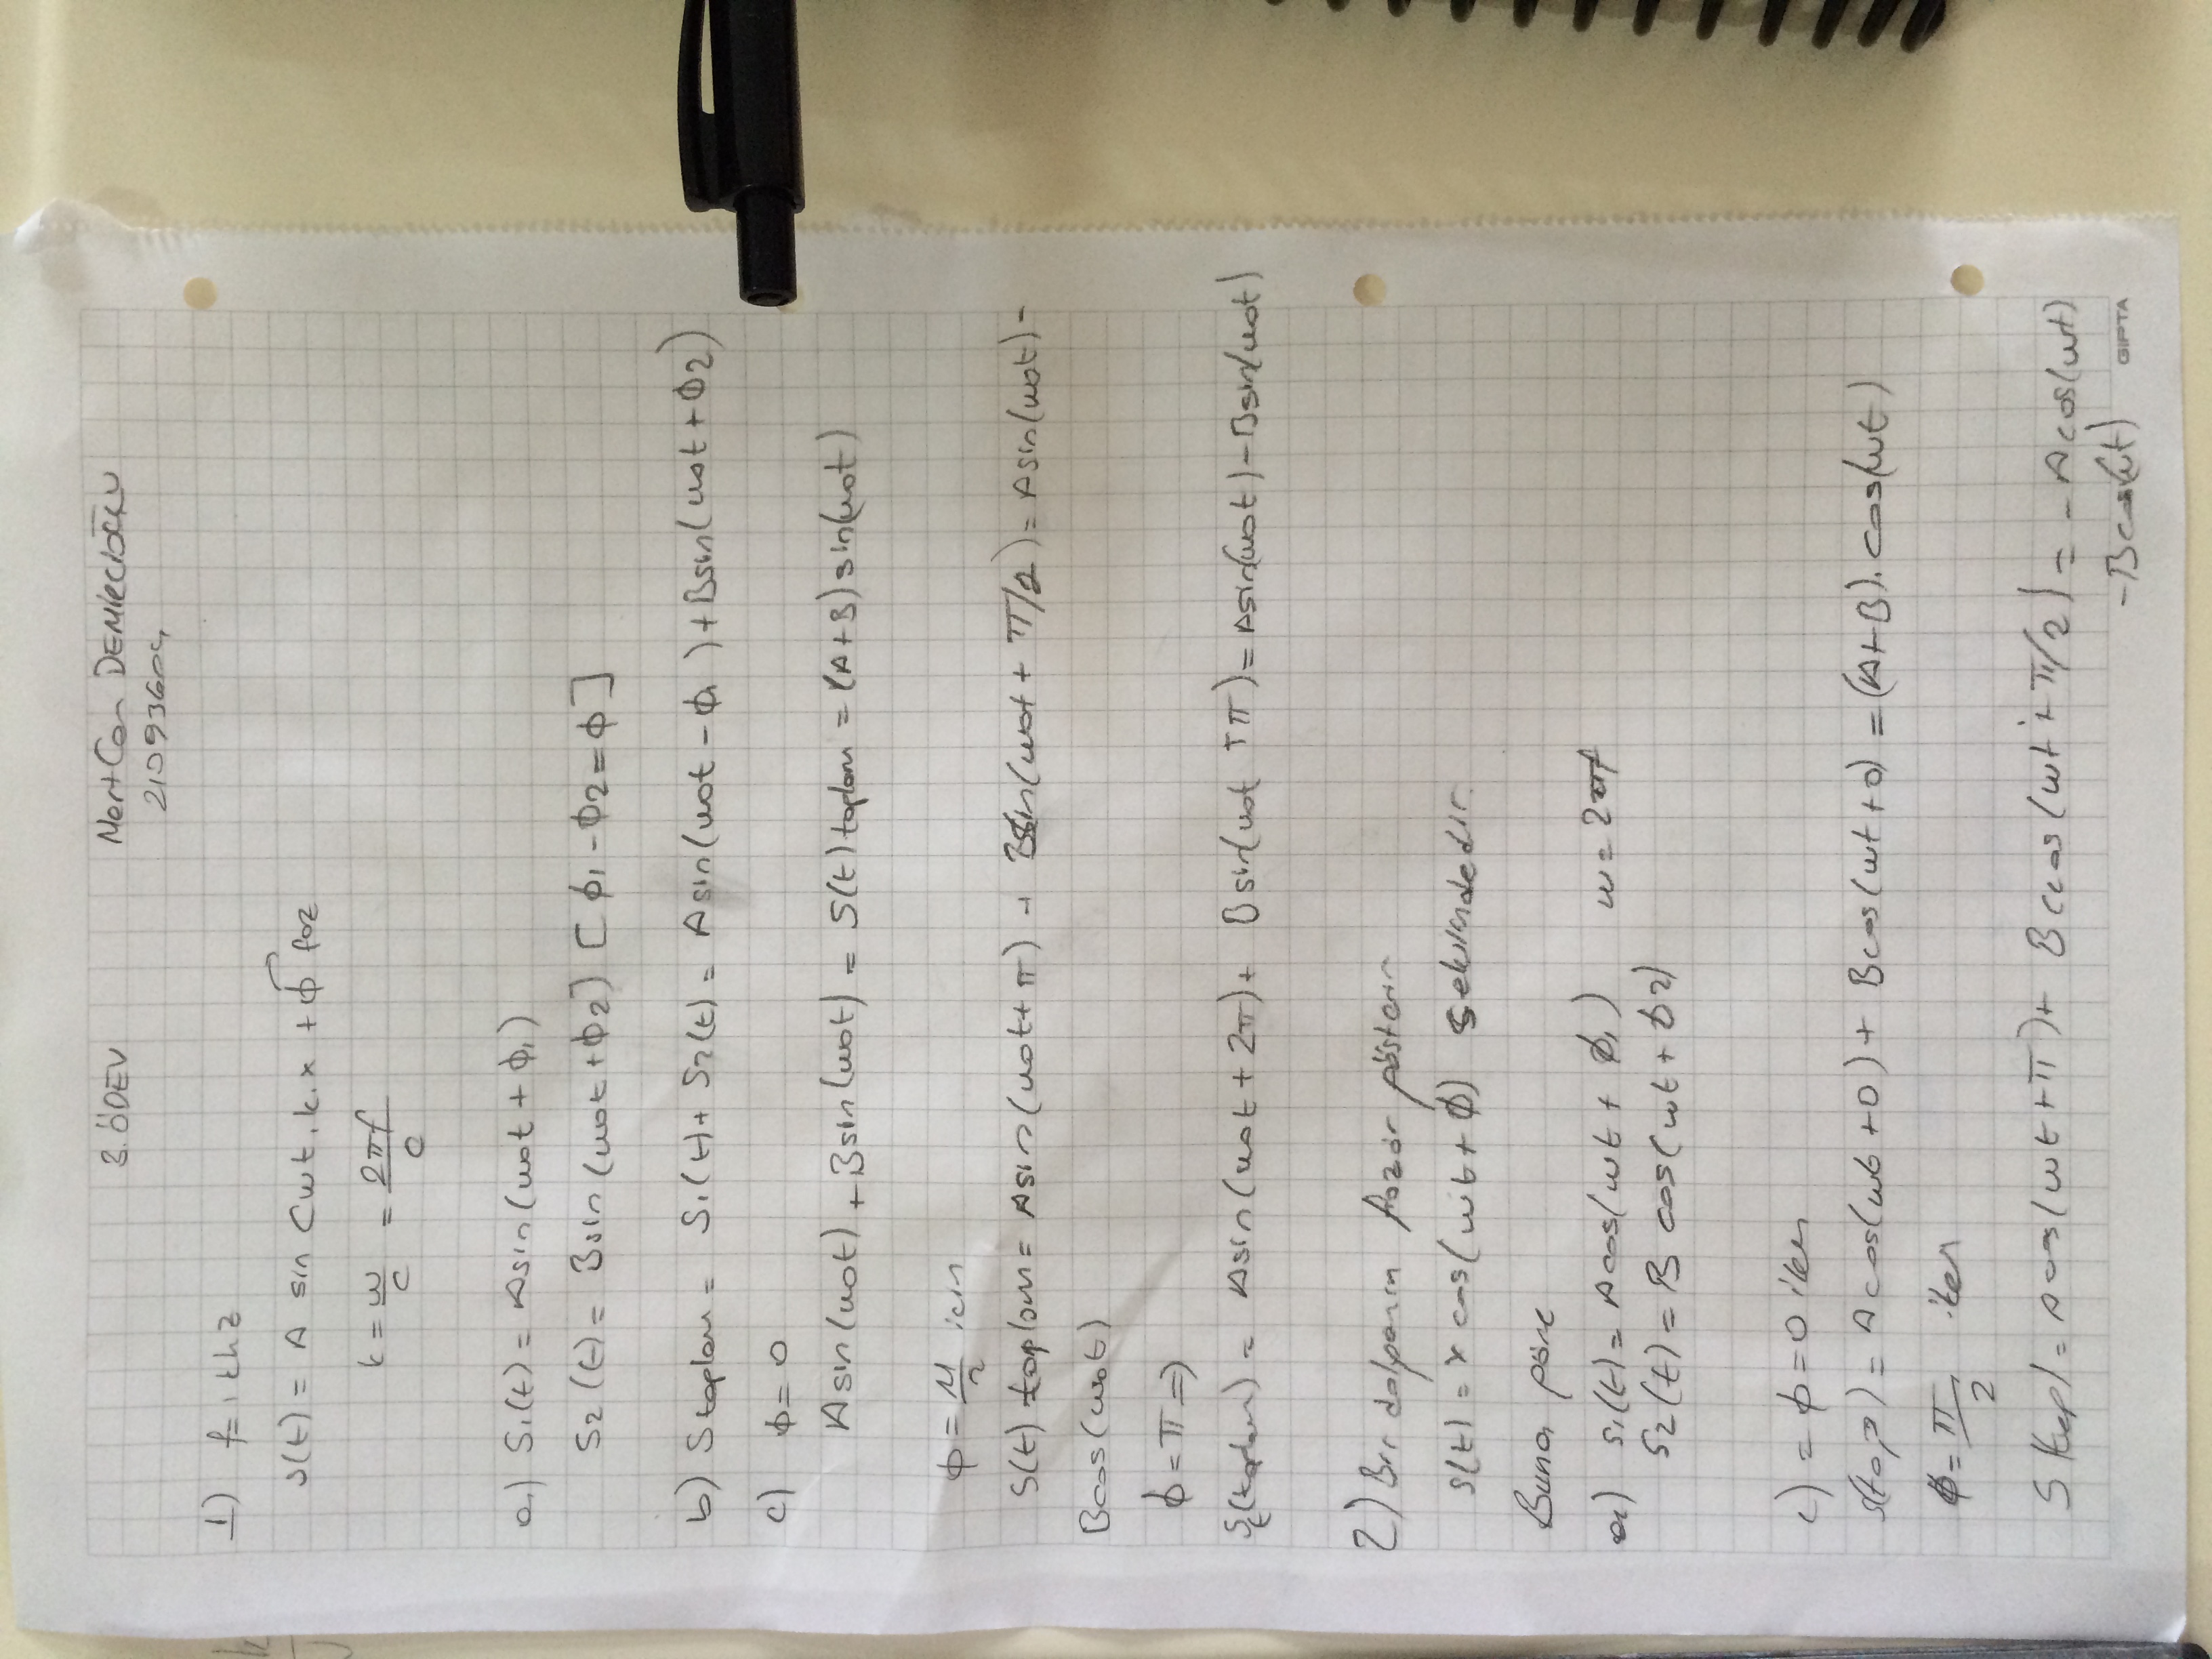 3. ÖDEV
MertCan DEMİRCİOĞLU
21093604
1) f=1 khz
s(t) = A sin (wt.k.x + ϕ faz
k = w/c = 2πf/c
a) S1(t) = Asin(wot + ϕ1)
S2(t) = Bsin(wot+ϕ2) [ϕ1-ϕ2=ϕ]
b) Stoplam = S1(t)+S2(t) = Asin(wot-ϕ1)+Bsin(wot+ϕ2)
c) ϕ=0
Asin(wot)+Bsin(wot) = S(t) toplam = (A+B)sin(wot)
ϕ = π/2 icin
S(t) toplam = Asin(wot+π) + Bsin(wot+π/2) = Asin(wot)-
Bcos(wot)
ϕ=π =>
St(toplam) = Asin(wot+2π)+ Bsin(wot+π)= Asin(wot)-Bsin(wot)
2) Bir dalganın fazör gösterim
s(t) = x cos(wt+ϕ) seklindedir.
Buna göre
a) s1(t) = Acos(wt+ϕ1) w=2πf
S2(t) = B cos(wt+ϕ2)
c) = ϕ=0 iken
S(top) = Acos(wt+0)+ Bcos(wt+0) = (A+B).cos(wt)
ϕ= π/2 iken
S(top) = Acos(wt+π)+ Bcos(wt+π/2) = -Acos(wt)
-Bcos(wt)
GIPTA